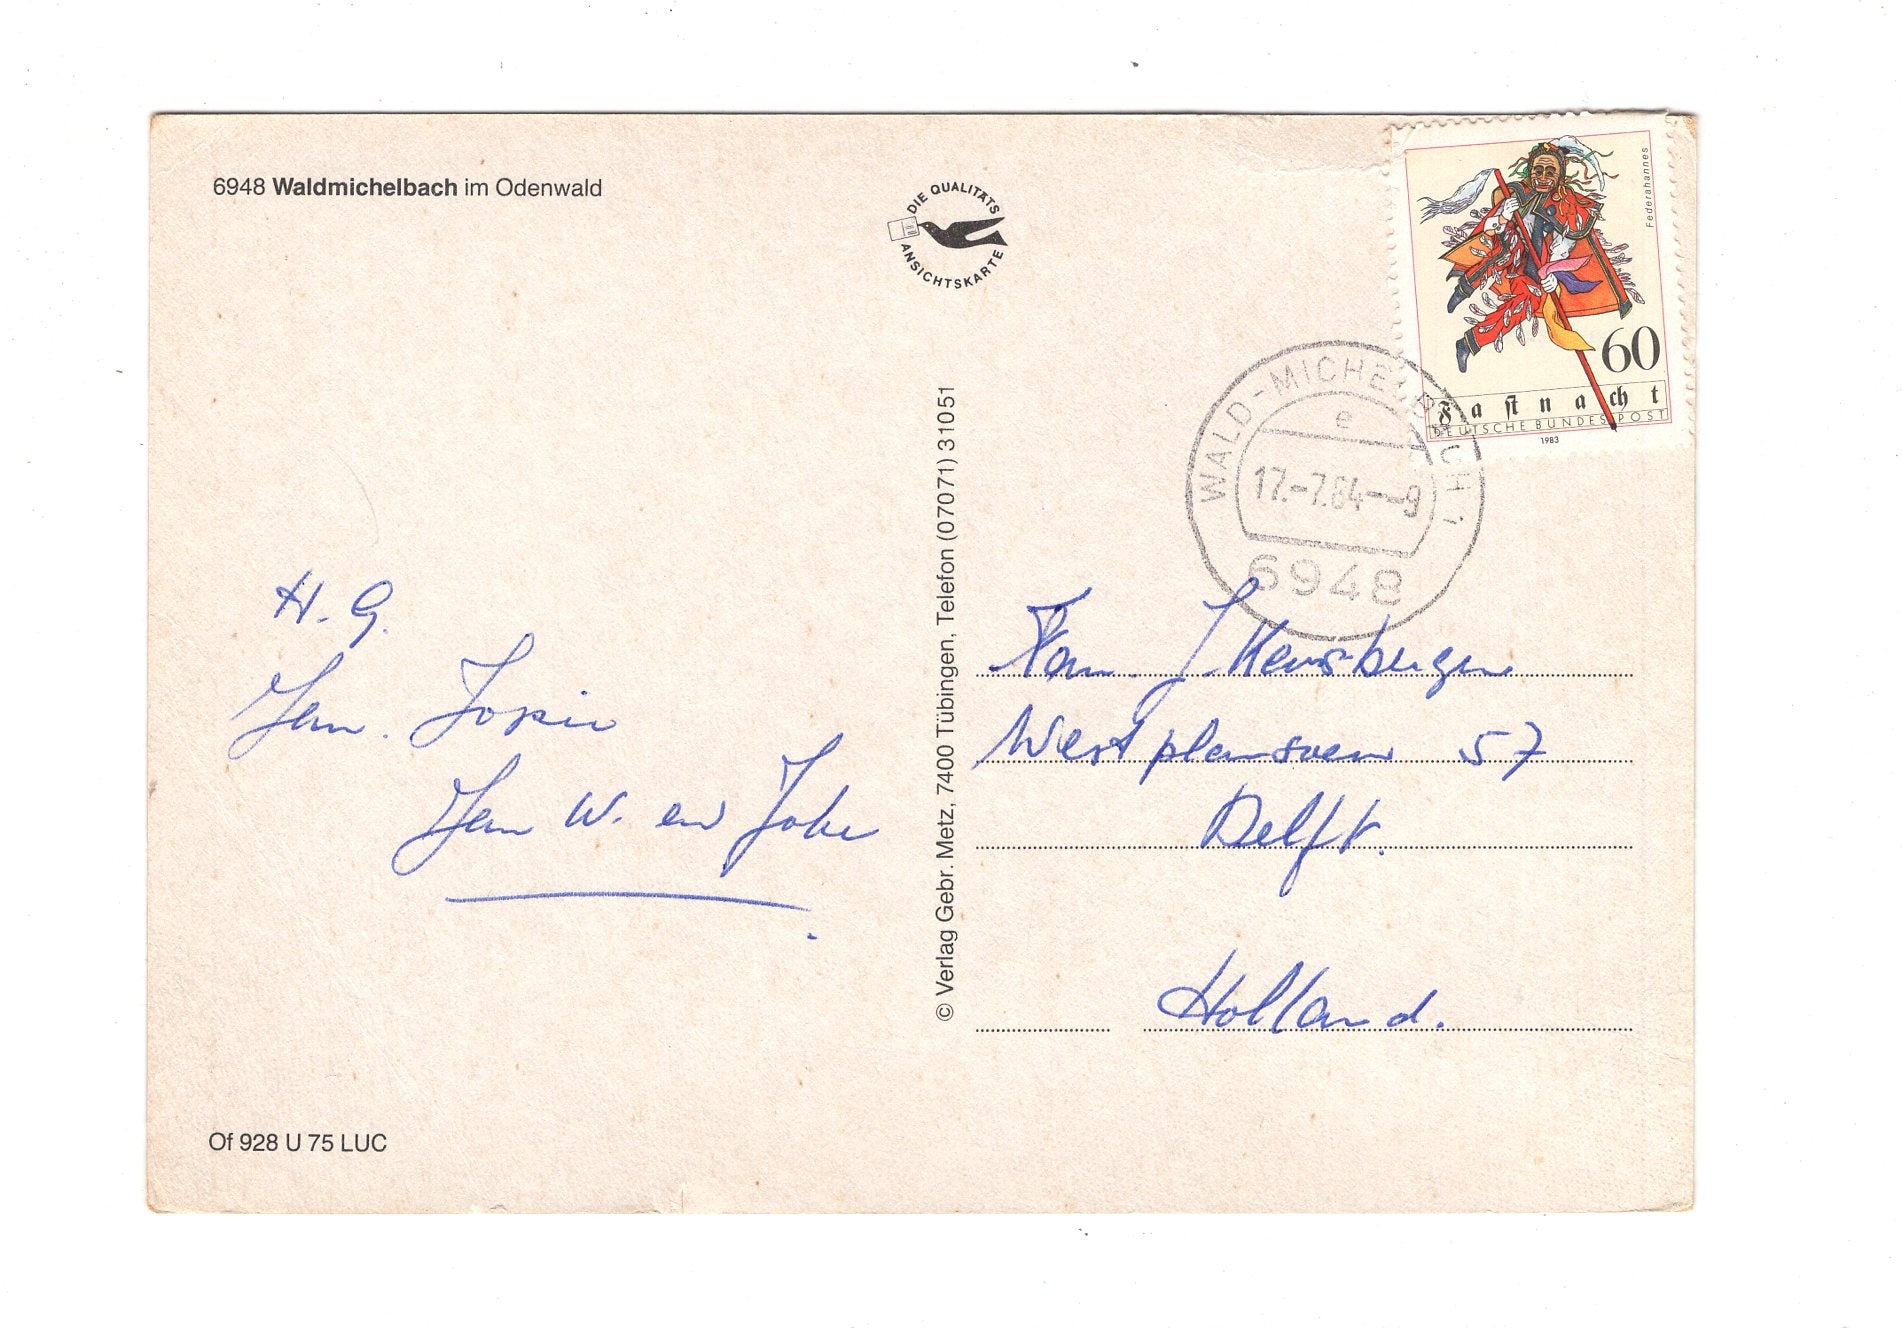 6948 Waldmichelbach im Odenwald
DIE QUALITÄTS
ANSICHTSKARTE
Federahannes
60
Fastnacht
DEUTSCHE BUNDESPOST
1983
WALD-MICHELBACH 1
e
17.-7.84--9
6948
H. G.
Jan. Jopie
Jan W. en Joke
© Verlag Gebr. Metz, 7400 Tübingen, Telefon (07071) 31051
Fam. J.
57
Delft.
Holland.
Of 928 U 75 LUC